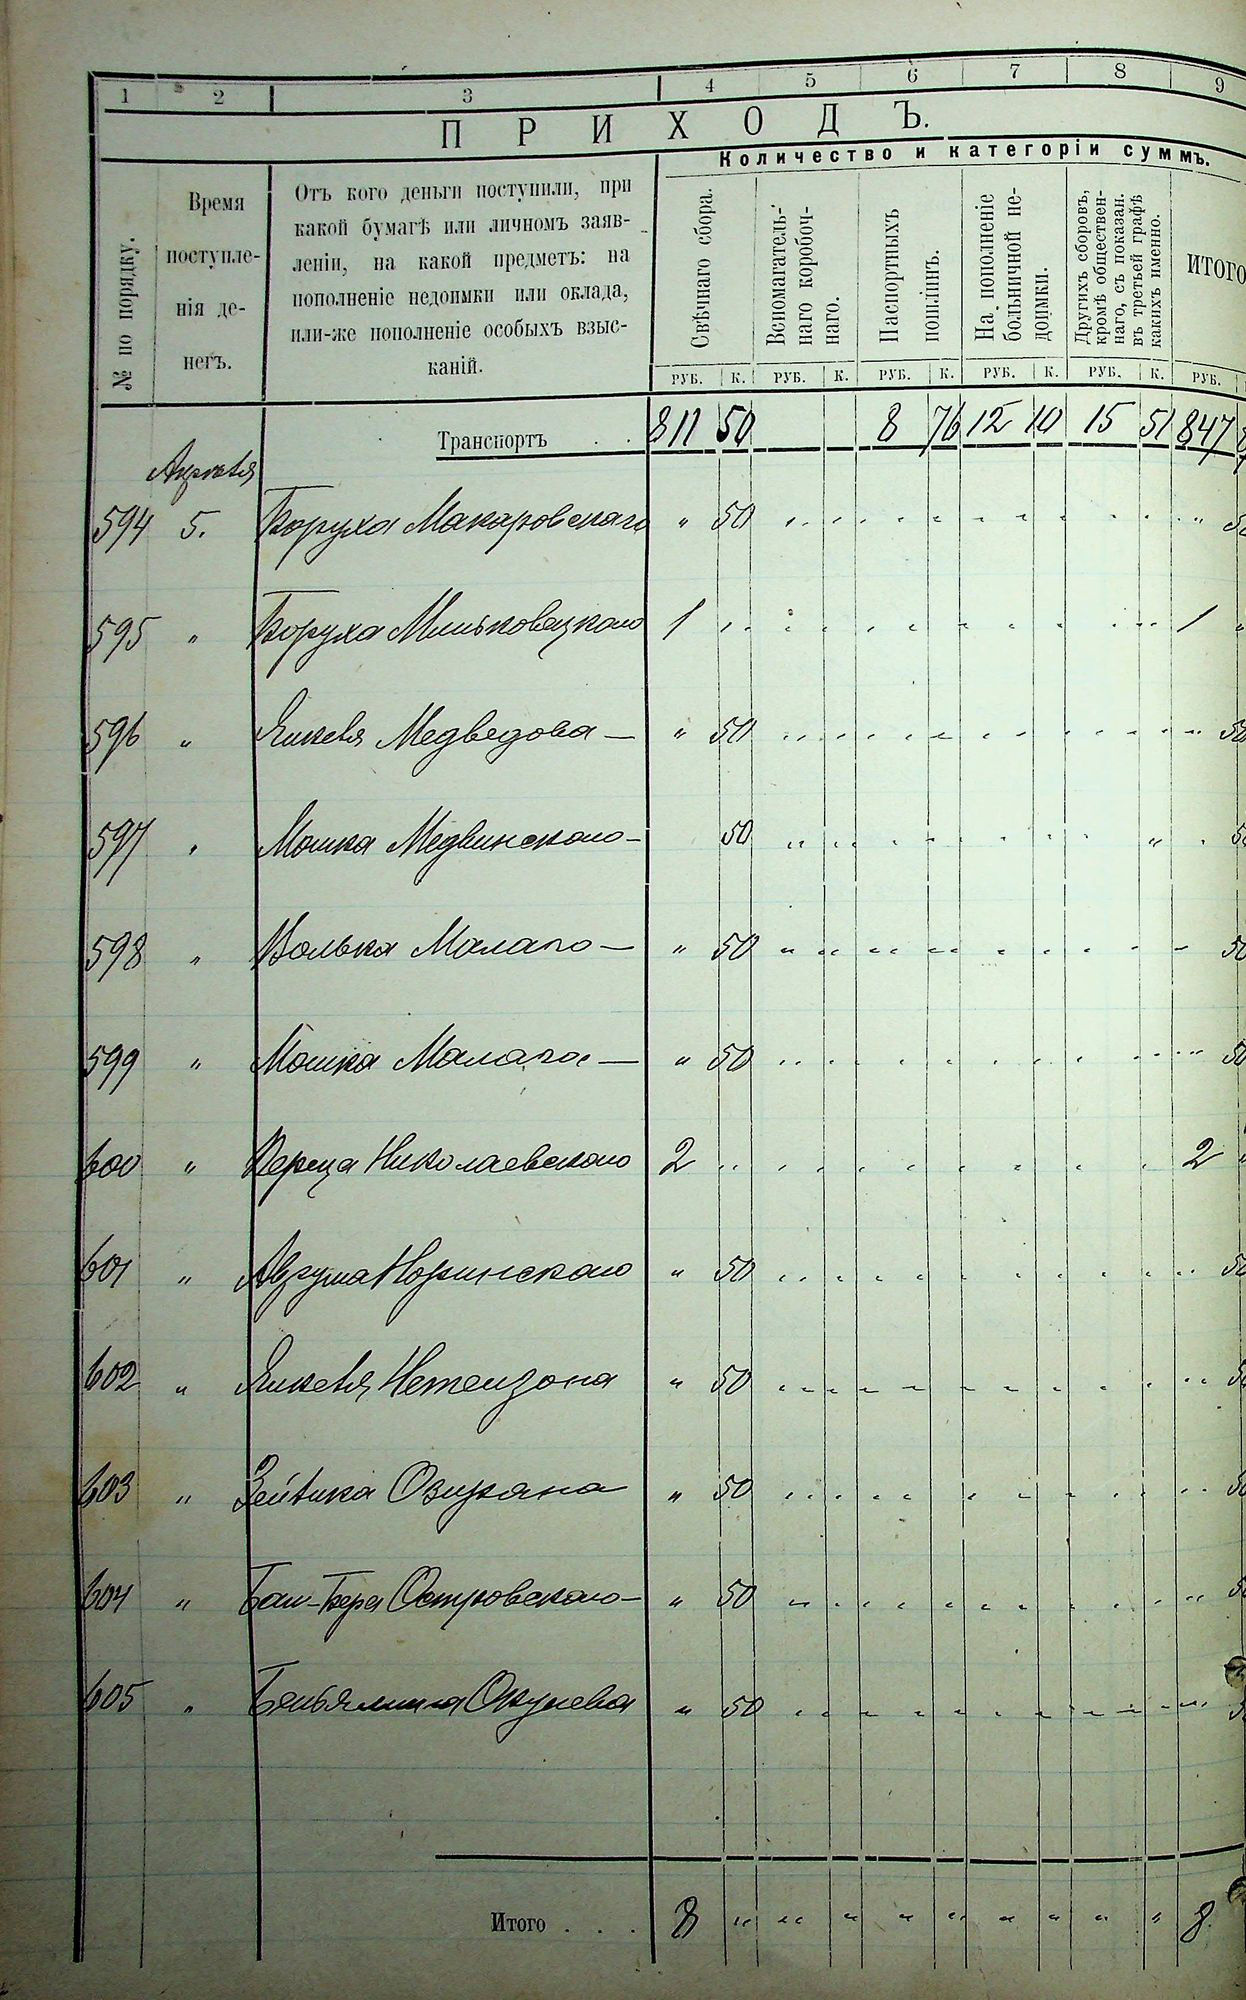 1 2 3 4 5 6 7 8 9
ПРИХОДЪ.
Количество и категоріи суммъ.
№ по порядку.
Время
поступле-
нія де-
негъ.
Отъ кого деньги поступили, при
какой бумагѣ или личномъ заяв-
леніи, на какой предметъ: на
пополненіе недоимки или оклада,
или-же пополненіе особыхъ взыс-
каній.
Свѣчнаго сбора.
Вспомагатель-
наго коробоч-
наго.
Паспортныхъ
пошлинъ.
На пополненіе
больничной не-
доимки.
Другихъ сборовъ,
кромѣ обществен-
наго, съ показан.
въ третьей графѣ
какихъ именно.
ИТОГО
РУБ. К. РУБ. К. РУБ. К. РУБ. К. РУБ. К. РУБ.
Транспортъ . . 811 50 8 76 12 10 15 51 847
Апрѣля
594 5. Боруха Макаровскаго " 50
595 " Боруха Миньковецкаго 1 1
596 " Янкеля Медведова — " 50 50
597 " Мошка Медвинскаго — 50
598 " Волька Малаго — " 50 50
599 " Мошка Малаго — " 50 50
600 " Перца Николаевскаго 2 2
601 " Аврума Норинскаго " 50 50
602 " Янкеля Нетензона " 50
603 " Зейвика Озирана " 50
604 " Бан-Бера Островскаго — " 50
605 " Беньямина Окунева " 50
Итого . . . 8 " " " " " " " " " 8